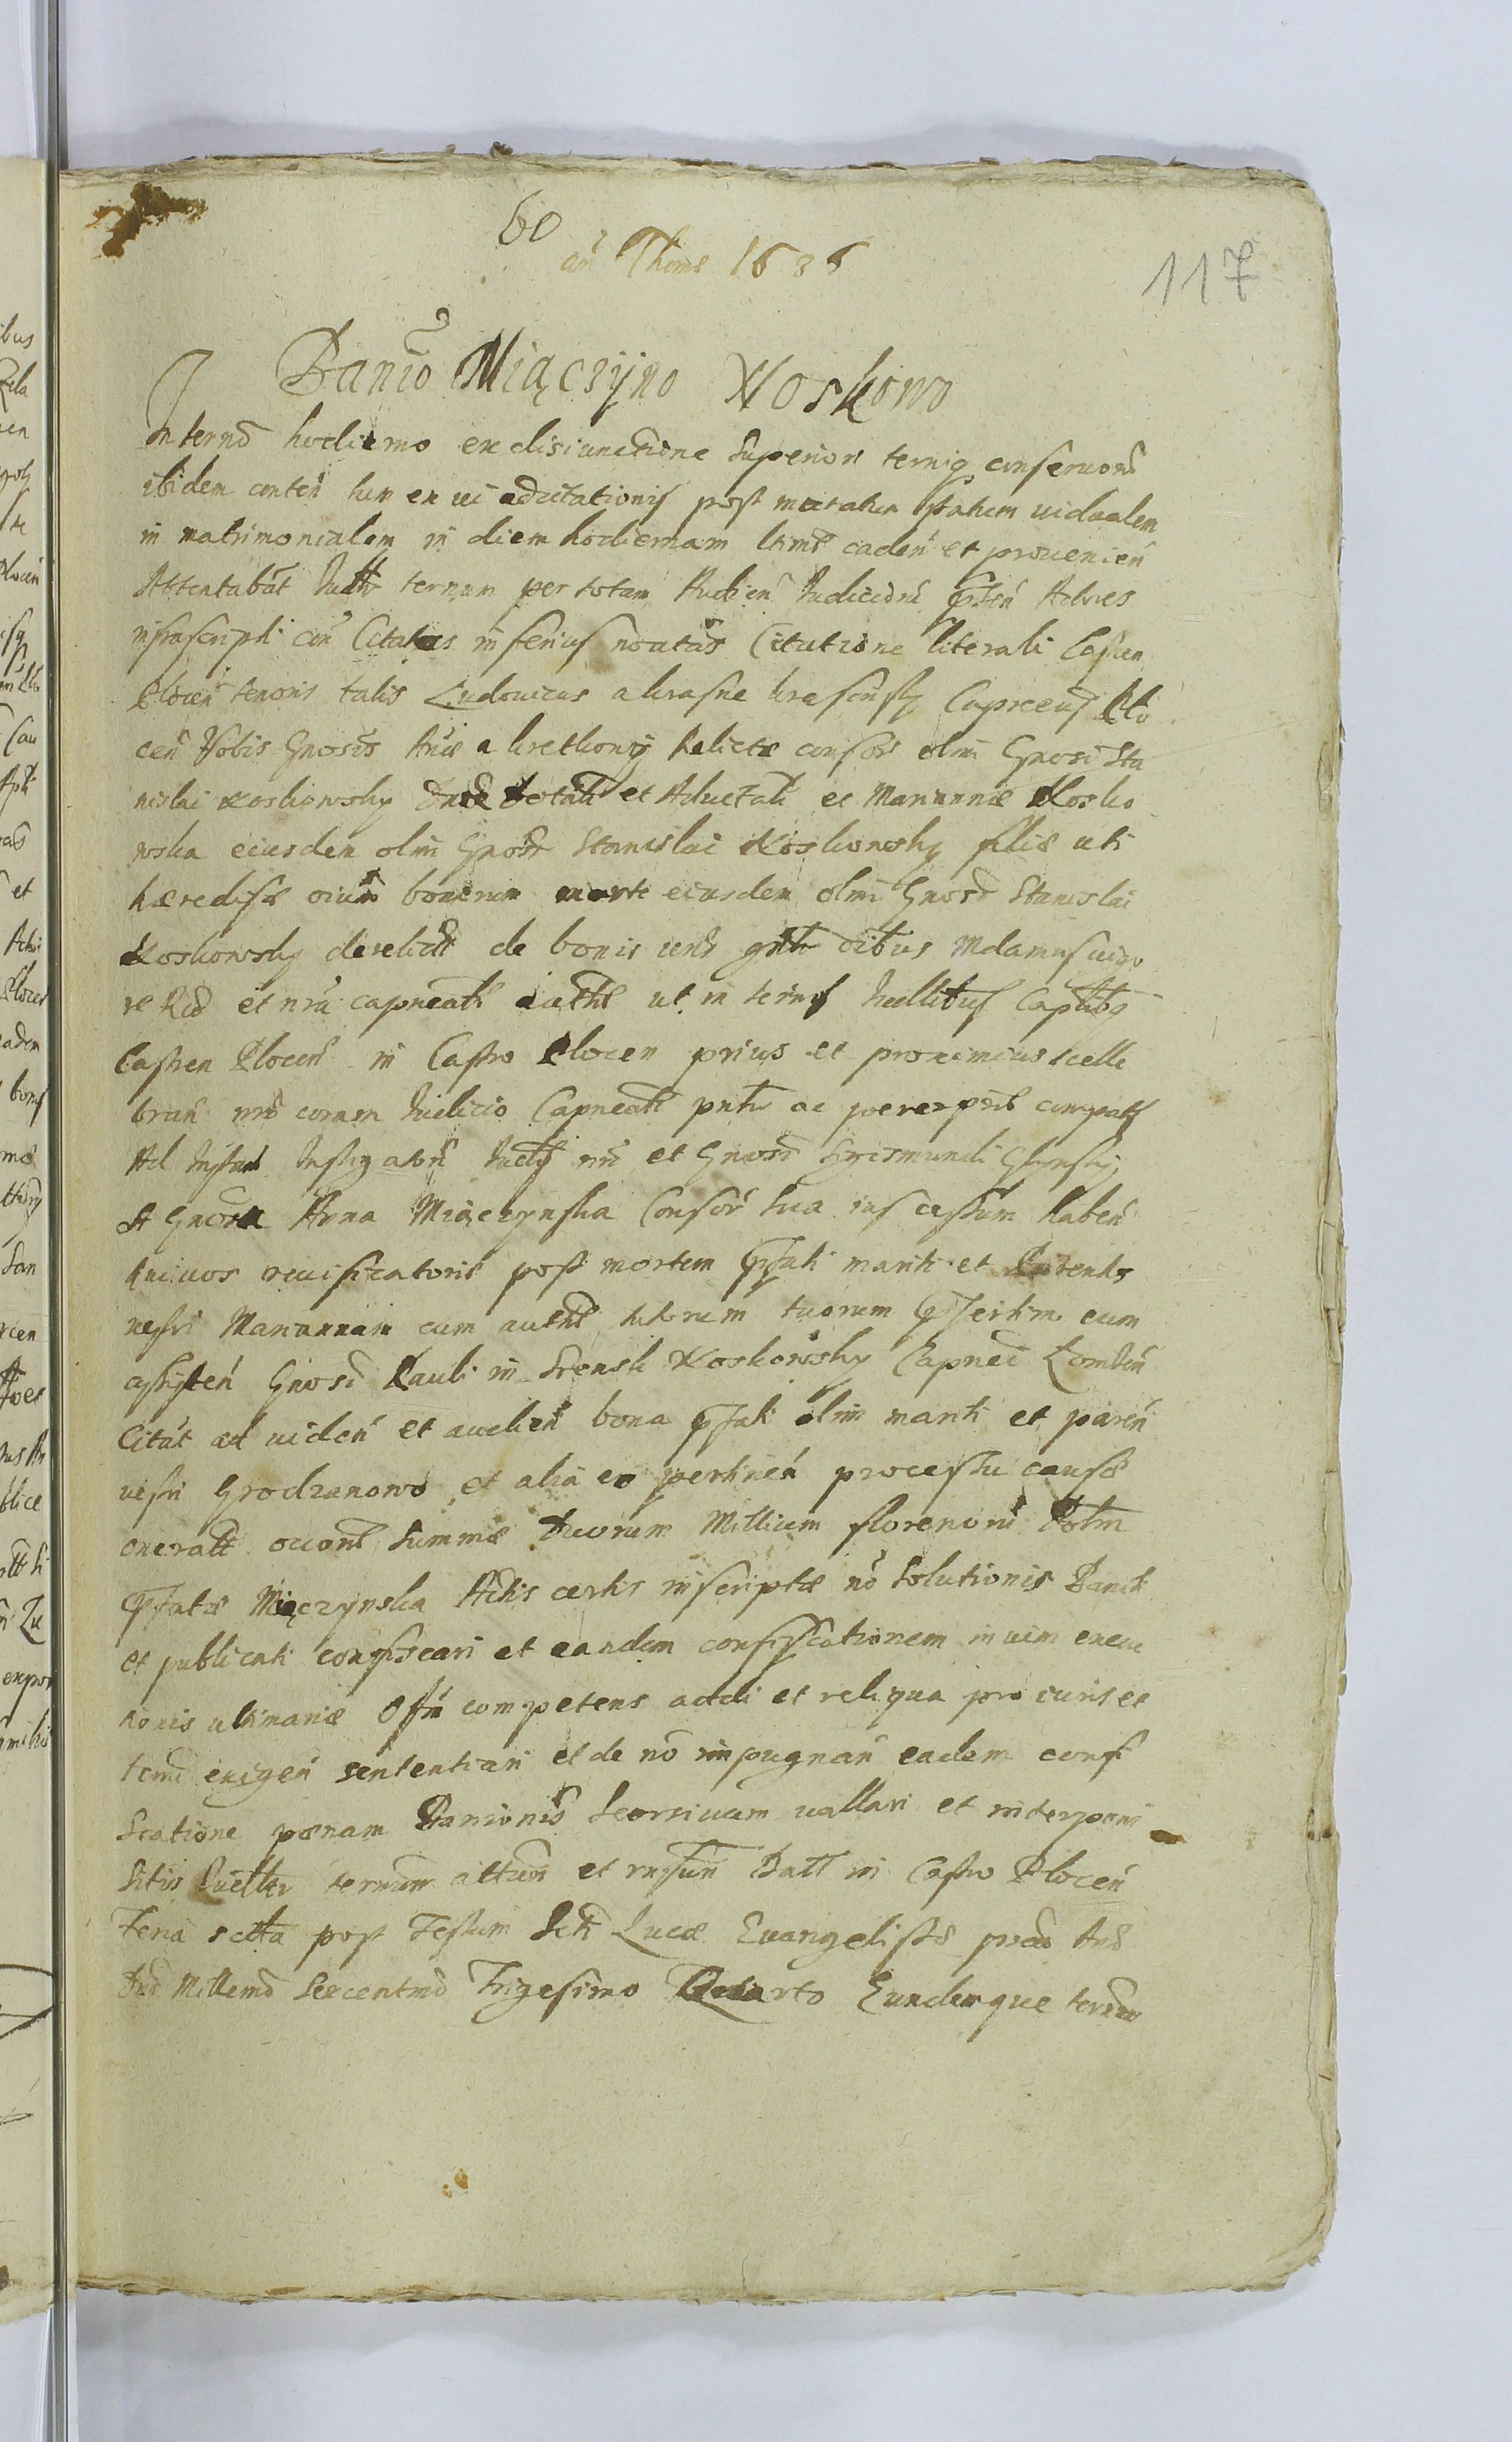 60
117
an Thome 1636
Banio Miączyno Koskowo
In termo hodierno ex disiunctione superiori termiq conseruone
ibidem conten tum ex ui adcitationis post mutatum statum uidualem
in matrimonialem in diem hodiernam ltime caden et prouenien
Attentabat Juditr terminum per totam Audien Judiciorum Actores
infrascripti con Citatas inferius noatas Citatione literali Castren
Plocen tenoris talis Ludouicus a krasne krasinsky Capneus Plo
cen Vobis Gnosis Anæ a krethowy Relictæ consors olim Gnosi Sta
nislai Koskowsky dotali et Aduitali et Mariannæ Kosko
wska eiusdem olim Gnosi Stanislai Koskowsky filiæ uti
hæredissæ oium bonorum morte eiusdem olim Gnosi Stanislai
Koskowsky derelict de bonis uris gntr oibus Mdamus uigo
re Rio et nra capneali authte ut in termis Juditbus Capnlibq
Castren Plocen in Castro Plocen prius et proximius celle
bran nris coram Judicio Capneali pntr ac perempte compatis
Ad Instan Instigatoris Judij nri et Gnosi Sigismundi Glinsky
et Gnosa Anna Miączynska Consors sua ius cessum haben
Qui uos reuisicatoris post mortem mariti et Parentis
nestri Mariannam cum authte tutorum tuorum cum
assisten Gnosi Pauli in Srensk Koskowsky Capnei Lomzen
Citat ad uiden et audien bona olim mariti et paren
uestri Grodzanowo et alia eo pertinen processu causæ
onerali occone summæ Duorum Millium florenorum Polm
Miączynska Actis certis inscriptæ no solutionis Baniti
et publicati confiscari et eandem confiscationem in uim execu
tionis ultimariæ Offm competens addi et reliqua pro iuris et
termi exigen sententiari et de no impugnan eadem confi
scatione pænam Banionis seorsiuam uallari et interponi
Sitis Juditr terminum attum et rnsuri Datt in Castro Plocen
Feria sexta post Festum Scti Lucæ Euangelistæ proa Ano
Dni Millemo Sexcentmo Trigesimo Quarto Eundemque termin